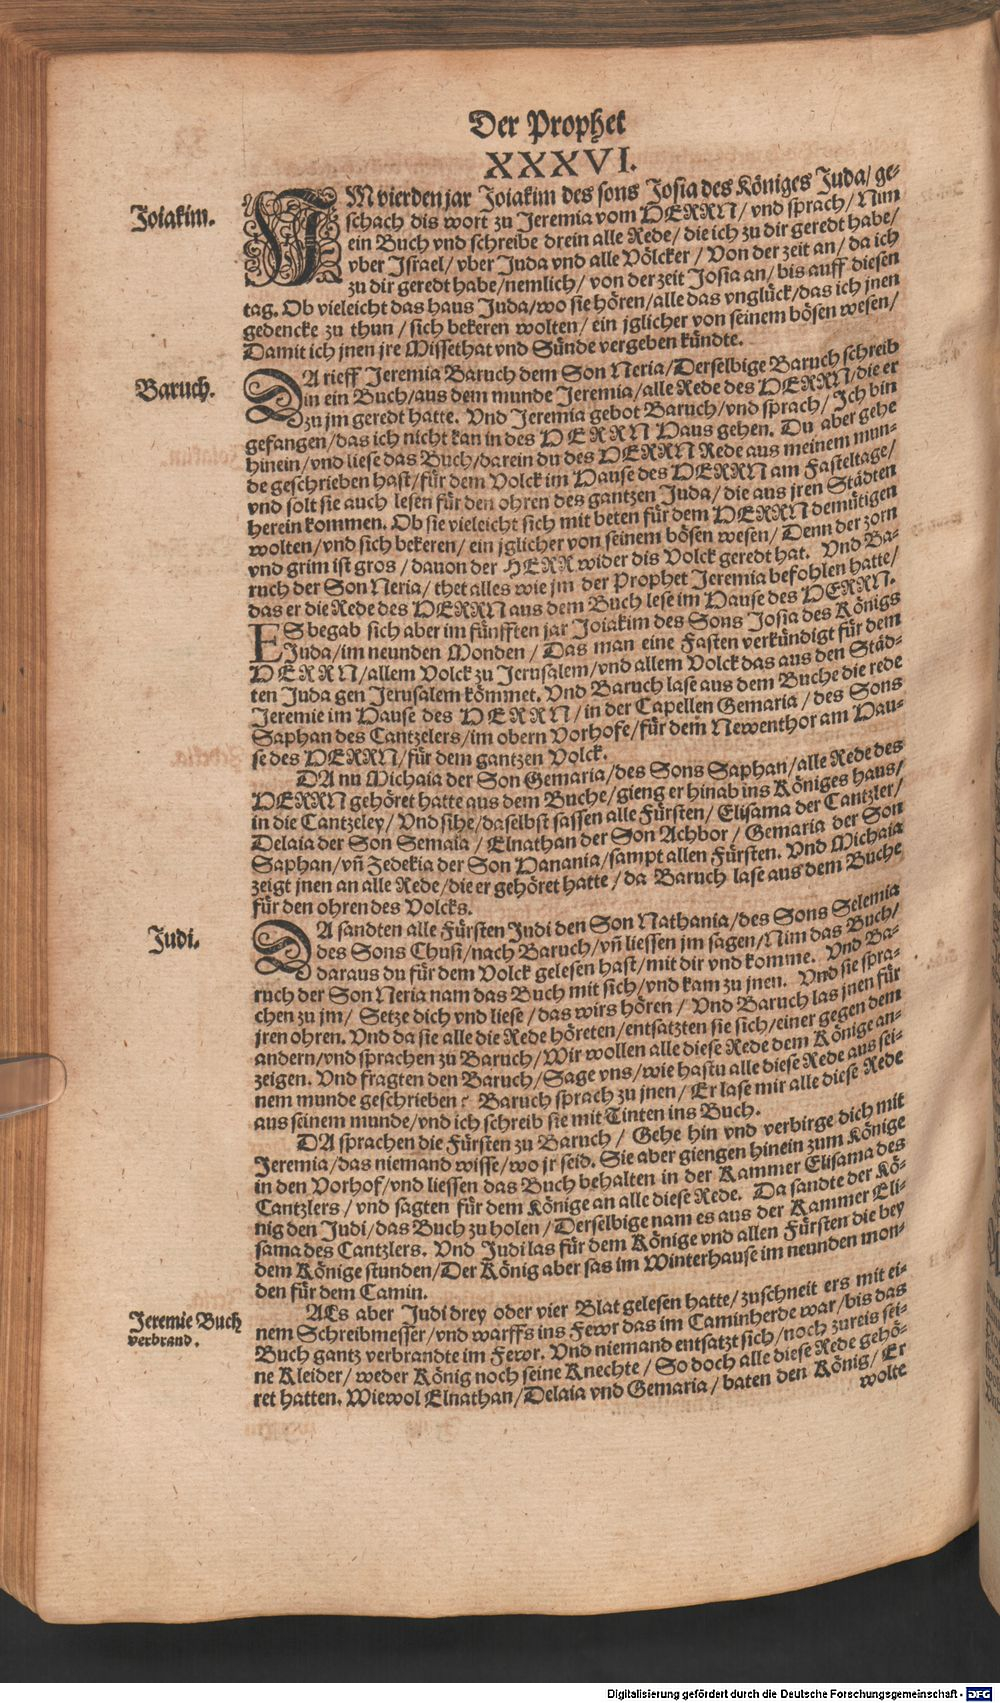 Der Prophet
XXXVI.
Joiakim.
IM vierden jar Joiakim des sons Josia des Königes Juda/ ge-
schach dis wort zu Jeremia vom HERRN/ vnd sprach/ Nim
ein Buch vnd schreibe drein alle Rede/ die ich zu dir geredt habe/
vber Israel/ vber Juda vnd alle Völcker/ Von der zeit an/ da ich
zu dir geredt habe/ nemlich/ von der zeit Josia an/ bis auff diesen
tag. Ob vieleicht das haus Juda/ wo sie hören/ alle das vnglück/ das ich jnen
gedencke zu thun/ sich bekeren wolten/ ein jglicher von seinem bösen wesen/
Damit ich jnen jre Missethat vnd Sünde vergeben kündte.
Baruch.
DA rieff Jeremia Baruch dem Son Neria/ Derselbige Baruch schreib
in ein Buch/ aus dem munde Jeremia/ alle Rede des HERRN/ die er
zu jm geredt hatte. Vnd Jeremia gebot Baruch/ vnd sprach/ Ich bin
gefangen/ das ich nicht kan in des HERRN Haus gehen. Du aber gehe
hinein/ vnd liese das Buch/ darein du des HERRN Rede aus meinem mun-
de geschrieben hast/ für dem Volck im Hause des HERRN am Fasteltage/
vnd solt sie auch lesen für den ohren des gantzen Juda/ die aus jren Städten
herein kommen. Ob sie vieleicht sich mit beten für dem HERRN demütigen
wolten/ vnd sich bekeren/ ein jglicher von seinem bösen wesen/ Denn der zorn
vnd grim ist gros/ dauon der HERR wider dis Volck geredt hat. Vnd Ba-
ruch der Son Neria/ thet alles wie jm der Prophet Jeremia befohlen hatte/
das er die Rede des HERRN aus dem Buch lese im Hause des HERRN.
ES begab sich aber im fünfften jar Joiakim des Sons Josia des Königs
Juda/ im neunden Monden/ Das man eine Fasten verkündigt für dem
HERRN/ allem Volck zu Jerusalem/ vnd allem Volck das aus den Städ-
ten Juda gen Jerusalem kömmet. Vnd Baruch lase aus dem Buche die rede
Jeremie im Hause des HERRN/ in der Capellen Gemaria/ des Sons
Saphan des Cantzelers/ im obern Vorhofe/ für dem Newenthor am Hau-
se des HERRN/ für dem gantzen Volck.
DA nu Michaia der Son Gemaria/ des Sons Saphan/ alle Rede des
HERRN gehöret hatte aus dem Buche/ gieng er hinab ins Königes haus/
in die Cantzeley/ Vnd sihe/ daselbst sassen alle Fürsten/ Elisama der Cantzler/
Delaia der Son Semaia/ Elnathan der Son Achbor/ Gemaria der Son
Saphan/ vñ Zedekia der Son Hanania/ sampt allen Fürsten. Vnd Michaia
zeigt jnen an alle Rede/ die er gehöret hatte/ da Baruch lase aus dem Buche
für den ohren des Volcks.
Judi.
DA sandten alle Fürsten Judi den Son Nathania/ des Sons Selemia
des Sons Chusi/ nach Baruch/ vñ liessen jm sagen/ Nim das Buch/
daraus du für dem Volck gelesen hast/ mit dir vnd komme. Vnd Ba-
ruch der Son Neria nam das Buch mit sich/ vnd kam zu jnen. Vnd sie spra-
chen zu jm/ Setze dich vnd liese/ das wirs hören/ Vnd Baruch las jnen für
jren ohren. Vnd da sie alle die Rede höreten/ entsatzten sie sich/ einer gegen dem
andern/ vnd sprachen zu Baruch/ Wir wollen alle diese Rede dem Könige an-
zeigen. Vnd fragten den Baruch/ Sage vns/ wie hastu alle diese Rede aus sei-
nem munde geschrieben? Baruch sprach zu jnen/ Er lase mir alle diese Rede
aus seinem munde/ vnd ich schreib sie mit Tinten ins Buch.
DA sprachen die Fürsten zu Baruch/ Gehe hin vnd verbirge dich mit
Jeremia/ das niemand wisse/ wo jr seid. Sie aber giengen hinein zum Könige
in den Vorhof/ vnd liessen das Buch behalten in der Kammer Elisama des
Cantzlers/ vnd sagten für dem Könige an alle diese Rede. Da sandte der Kö-
nig den Judi/ das Buch zu holen/ Derselbige nam es aus der Kammer Eli-
sama des Cantzlers. Vnd Judi las für dem Könige vnd allen Fürsten die bey
dem Könige stunden/ Der König aber sas im Winterhause im neunden mon-
den für dem Camin.
Jeremie Buch
verbrand.
ALs aber Judi drey oder vier Blat gelesen hatte/ zuschneit ers mit ei-
nem Schreibmesser/ vnd warffs ins Fewr das im Caminherde war/ bis das
Buch gantz verbrandte im Fewr. Vnd niemand entsatzt sich/ noch zureis sei-
ne Kleider/ weder König noch seine Knechte/ So doch alle diese Rede gehö-
ret hatten. Wiewol Elnathan/ Delaia vnd Gemaria/ baten den König/ Er
wolte
Digitalisierung gefördert durch die Deutsche Forschungsgemeinschaft - DFG